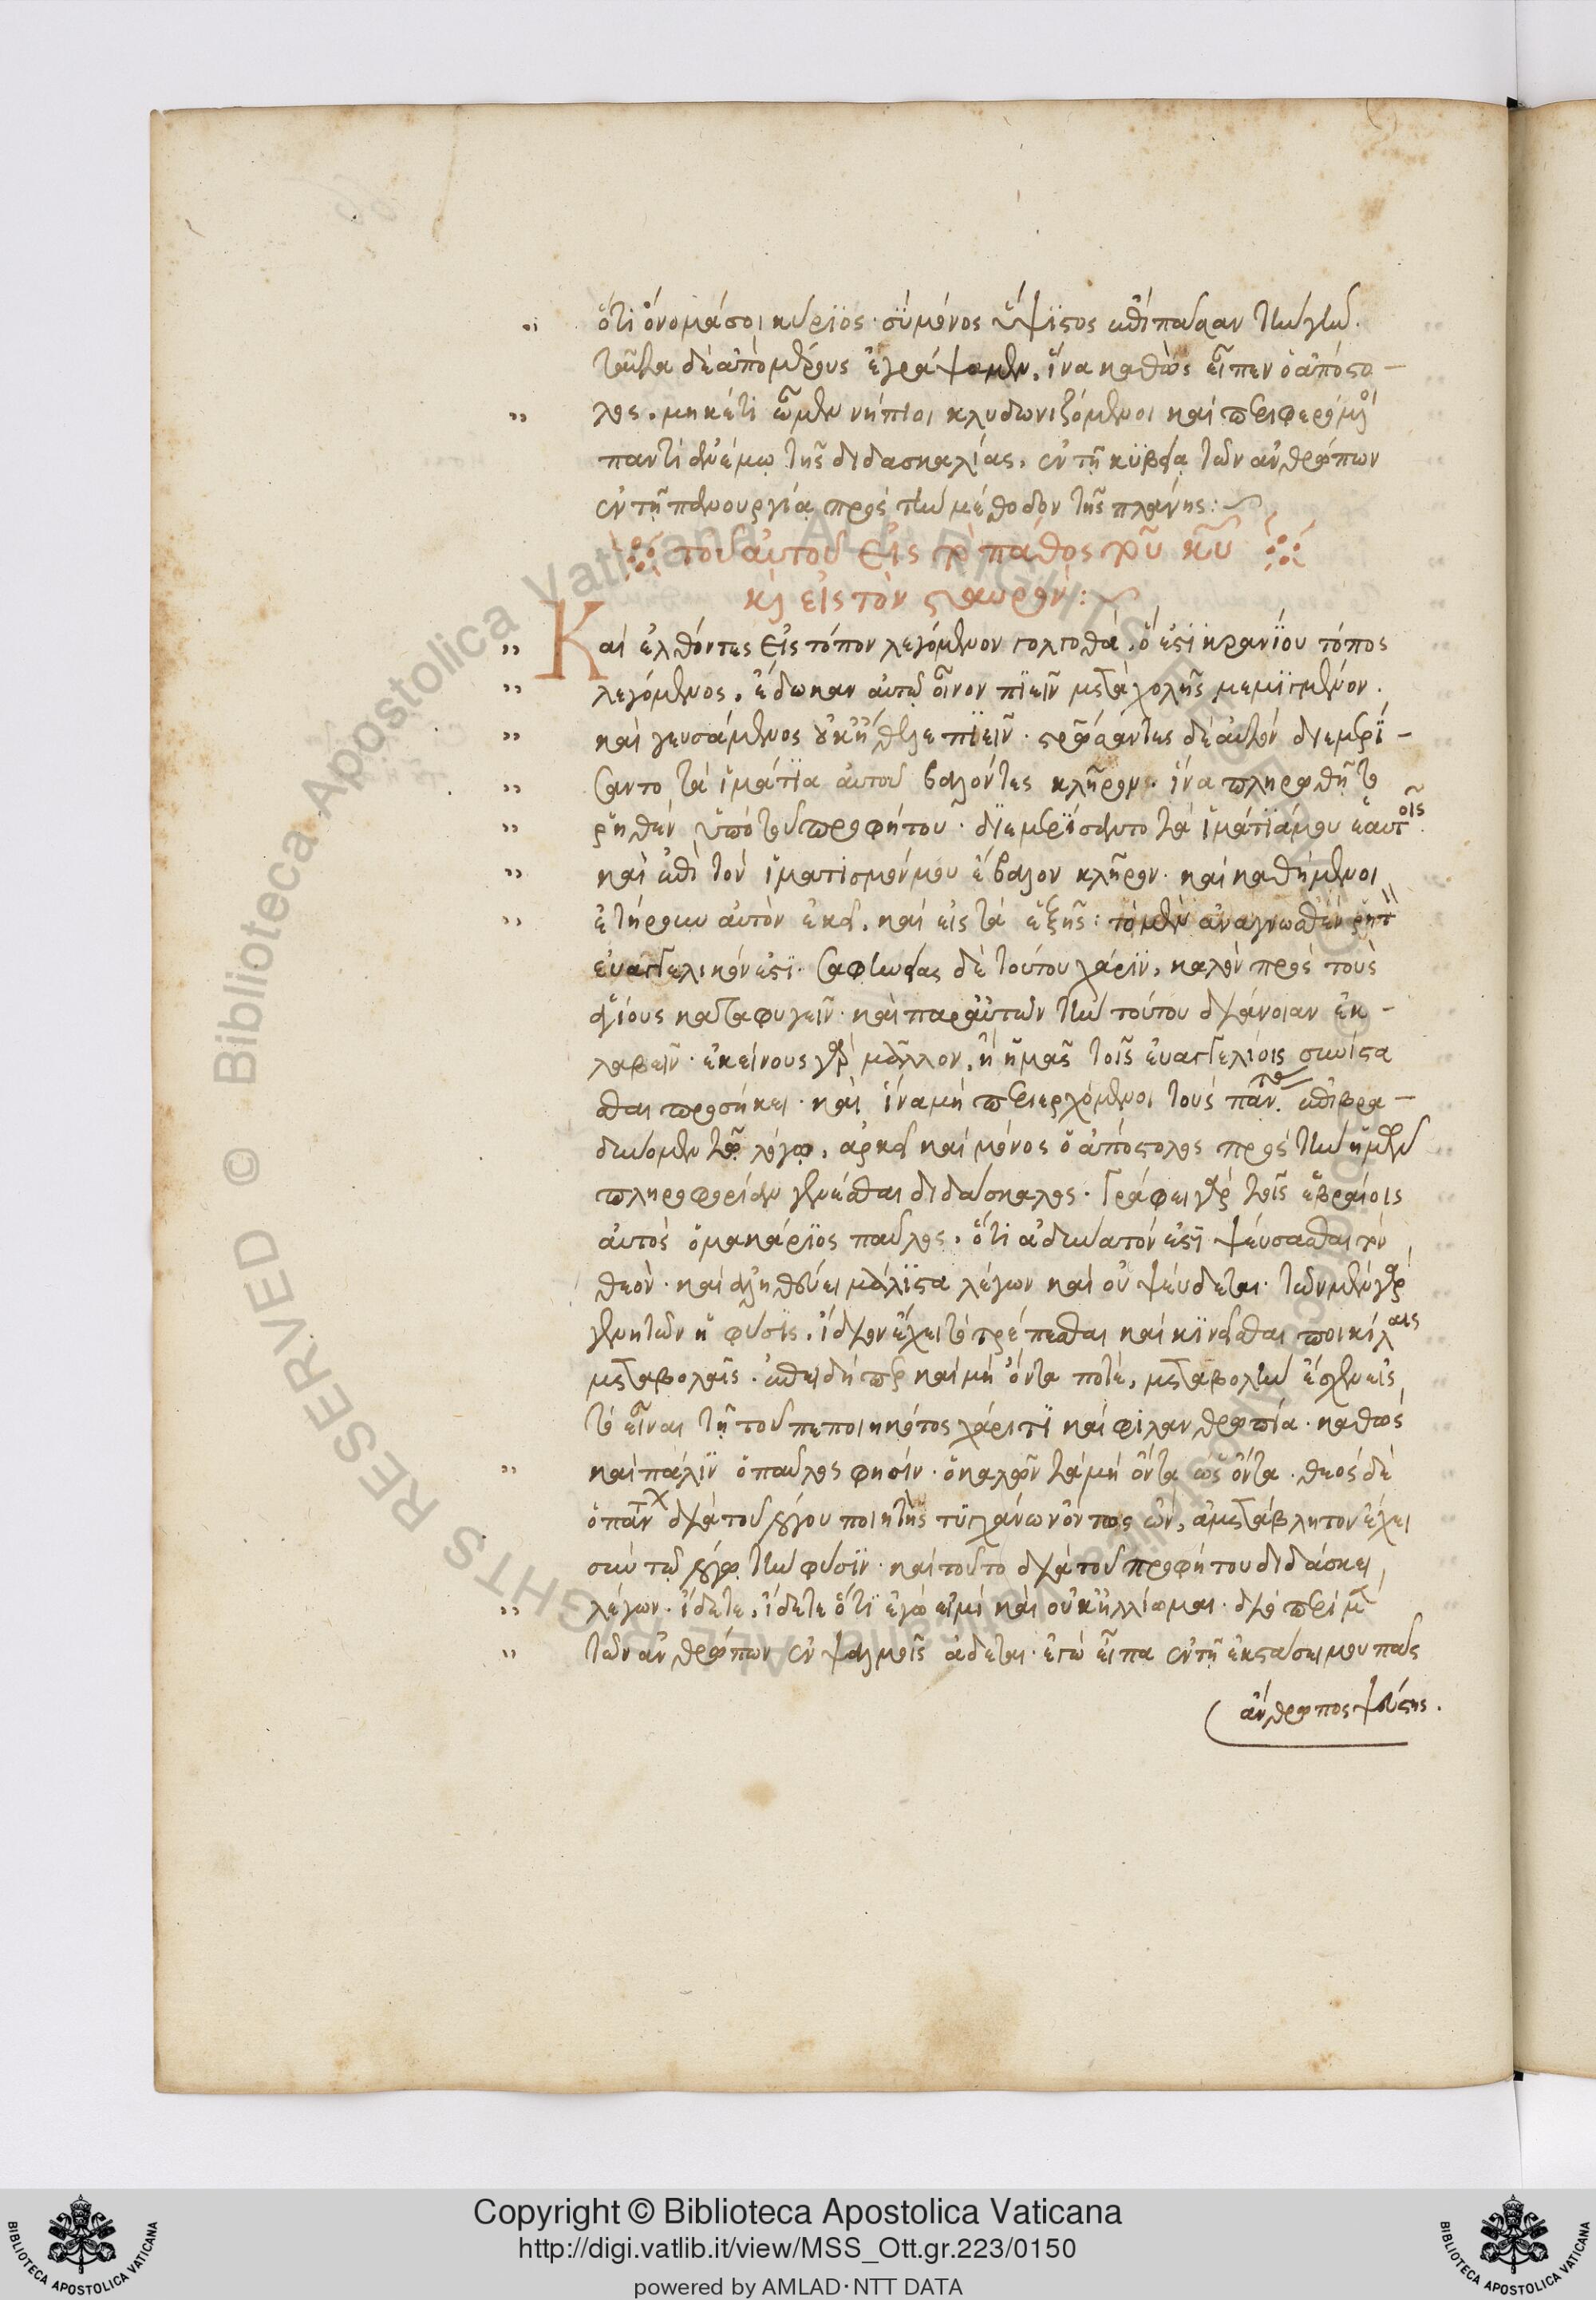 ὅτι ὄνομά σοι κύριος· σὺ μόνος ὕψιστος ἐπὶ πᾶσαν τὴν γῆν.
ταῦτα δὲ ἀπὸ μέρους ἐγράψαμεν, ἵνα καθὼς εἶπεν ὁ ἀπόστο-
λος, μηκέτι ὦμεν νήπιοι κλυδωνιζόμενοι καὶ περιφερόμενοι
παντὶ ἀνέμῳ τῆς διδασκαλίας, ἐν τῇ κυβείᾳ τῶν ἀνθρώπων
ἐν τῇ πανουργίᾳ πρὸς τὴν μέθοδον τῆς πλάνης:
τοῦ αὐτοῦ εἰς τὸ πάθος τοῦ κυ
κ εἰς τὸν σταυρόν:
Καὶ ἐλθόντες εἰς τόπον λεγόμενον γολγοθά, ὅ ἐστι κρανίου τόπος
λεγόμενος, ἔδωκαν αὐτῷ οἶνον πιεῖν μετὰ χολῆς μεμιγμένον.
καὶ γευσάμενος οὐκ ἤθελε πιεῖν· στρώσαντες δὲ αὐτὸν διεμερί-
σαντο τὰ ἱμάτια αὐτοῦ βαλόντες κλῆρον· ἵνα πληρωθῇ τὸ
ῥηθὲν ὑπὸ τοῦ προφήτου· διεμερίσαντο τὰ ἱμάτιά μου ἑαυτοῖς.
καὶ ἐπὶ τὸν ἱματισμόν μου ἔβαλον κλῆρον· καὶ καθήμενοι
ἐτήρουν αὐτὸν ἐκεῖ, καὶ εἰς τὰ ἑξῆς: τὸ μὲν ἀναγνωσθὲν ῥητὸν
εὐαγγελικόν ἐστι· σαφηνείας δὲ τούτου χάριν, καλὸν πρὸς τοὺς
ἁγίους καταφυγεῖν· καὶ παρ' αὐτῶν τὴν τούτου διάνοιαν ἐκ-
λαβεῖν· ἐκείνους γὰρ μᾶλλον, ἢ ἡμᾶς τοῖς εὐαγγελίοις συνίστα
σθαι προσήκει· καὶ ἵνα μὴ περιερχόμενοι τοὺς πάντας ἐπιβρα-
δύνωμεν τῷ λόγῳ, ἀρκεῖ καὶ μόνος ὁ ἀπόστολος πρὸς τὴν ἡμῶν
πληροφορίαν γενέσθαι διδάσκαλος. Γράφει γὰρ τοῖς ἑβραίοις
αὐτὸς ὁ μακάριος παῦλος, ὅτι ἀδύνατόν ἐστι ψεύσασθαι τὸν
θεόν· καὶ ἀληθεύει μάλιστα λέγων καὶ οὐ ψεύδεται· τῶν μὲν γὰρ
γενητῶν ἡ φύσις, ἴδιον ἔχει τὸ τρέπεσθαι καὶ κινεῖσθαι ποικίλαις
μεταβολαῖς· ἐπειδήπερ καὶ μὴ ὄντα ποτέ, μεταβολὴν ἔσχεν εἰς
τὸ εἶναι τῇ τοῦ πεποιηκότος χάριτι καὶ φιλανθρωπίᾳ· καθὼς
καὶ πάλιν ὁ παῦλος φησίν· ὁ καλῶν τὰ μὴ ὄντα ὡς ὄντα· θεὸς δὲ
ὁ πάντων διὰ τοῦ λόγου ποιητὴς τυγχάνων ὄντως ὤν, ἀμετάβλητον ἔχει
σὺν τῷ λόγῳ τὴν φύσιν· καὶ τοῦτο διὰ τοῦ προφήτου διδάσκει,
λέγων· ἴδετε, ἴδετε ὅτι ἐγώ εἰμι καὶ οὐκ ἠλλοίωμαι· διὸ περὶ μὲν
τῶν ἀνθρώπων ἐν ψαλμοῖς ᾄδεται· ἐγὼ εἶπα ἐν τῇ ἐκστάσει μου πᾶς
ἄνθρωπος ψεύστης.
© Biblioteca Apostolica Vaticana ALL RIGHTS RESERVED
Copyright © Biblioteca Apostolica Vaticana
http://digi.vatlib.it/view/MSS_Ott.gr.223/0150
powered by AMLAD·NTT DATA
BIBLIOTECA APOSTOLICA VATICANA
BIBLIOTECA APOSTOLICA VATICANA